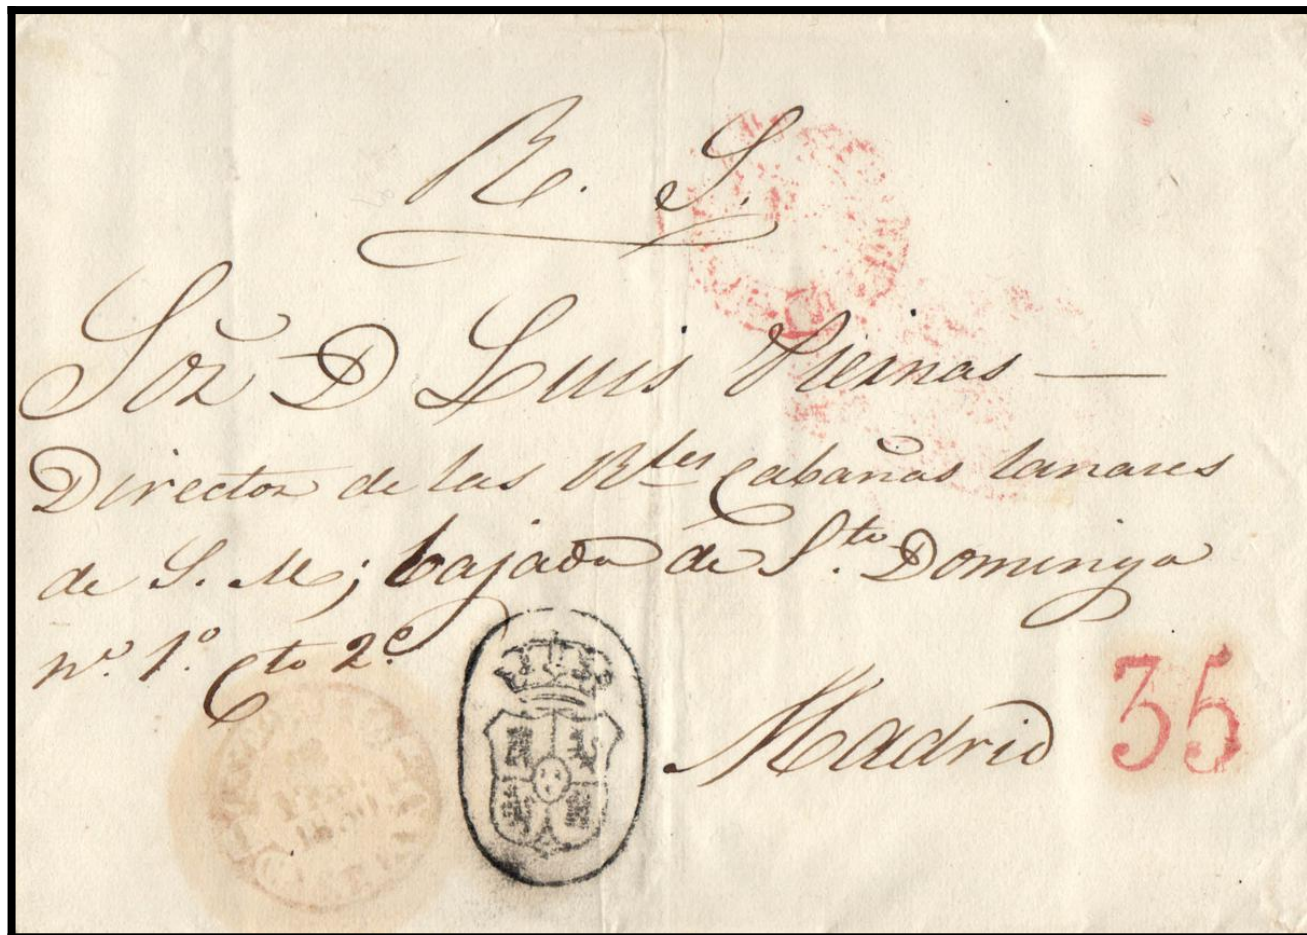 R. S.
Sor. D Luis Piernas —
Director de las Rles Cabañas lanares
de S. M; bajada de S.to Domingo
no. 1.o Cto 2.o
Madrid
35